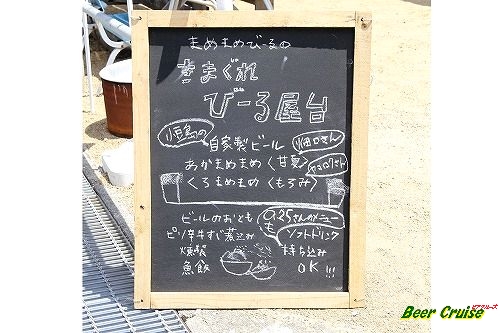 まめまめびーるの
きまぐれ
びーる屋台
小豆島の
自家製ビール
あかまめまめ〈甘夏〉
くろまめまめ〈もろみ〉
ヤマロクさん
ビールのおとも
ピリ辛牛すじ煮込み
燻製
魚飯
のメニュー
も
ソフトドリンク
持ち込み
OK!!!
ビアクルーズ
Beer Cruise